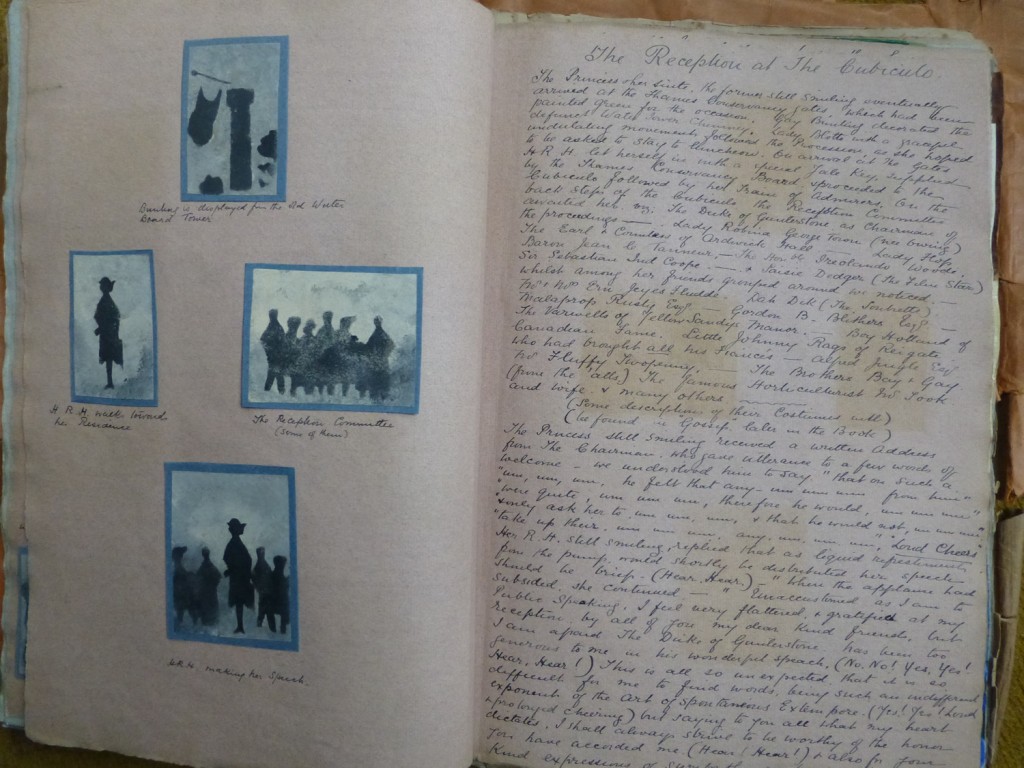 Bunting is displayed from the Old Water
Board Tower
H.R.H. walks toward
her Residence
The Reception Committee
(Some of them)
H.R.H. making her Speech.
The Reception at The Cubiculo.
The Princess & her Suite, the former still smiling eventually
arrived at the Thames Conservancy gates which had been
painted green for the occasion. Gay Bunting decorated the
defunct Water Tower Chimney. Lady Blotto with a graceful
undulating movement followed the Procession as she hoped
to be asked to stay to luncheon. On arrival at the Gates
H.R.H. let herself in with a special Yale Key, supplied
by the Thames Conservancy Board & proceeded to the
Cubiculo followed by her Train of Admirers. On the
back Steps of the Cubiculo the Reception Committee
awaited her viz; The Duke of Gunterstone as Chairman of
the proceedings — Lady Robina George Town (née Goring)
The Earl & Countess of Ardwick Hall — Lady Flip
Baron Jean le Tanneur, — The Honble Ireolando Woods.
Sir Sebastian Ind Coope. — & Maisie Dodger (The Film Star)
whilst among her friends grouped around we noticed. —
Mr & Mrs Eric Joyce Fludde. — Lah Deh (The Soubrette). —
Malaprop Rusty Esq — Gordon B. Blithers Esq —
The Varwells of Yellow Sandys Manor. — Boy Holland of
Canadian Fame. Little Johnny Rags of Reigate.
who had brought all his Fiancés — Alfred Jingle Esq
Mr Fluffy Twopenny. — The Brothers Bay & Gay
(from the 'alls) The famous Horticulturist Mr Took
and wife & many others
(Some description of their Costumes will)
(be found in Gossip later in the Book)
The Princess still smiling received a written Address
from The Chairman, who gave utterance to a few words of
welcome — we understood him to say, "that on such a
"um, um, um, he felt that any— um um um from him"
"were quite, um um um, therefore he would, um um um"
"& only ask her to, um, um, um, & that he would not, um um um"
"take up their, um um um, any, um, um, um," Loud Cheers
Her R.H. still smiling, replied that as liquid refreshments
from the pump, would shortly be distributed her speech
should be brief. (Hear, Hear.) — "When the applause had
subsided, she continued — "Unaccustomed as I am to
Public Speaking, I feel very flattered & gratified at my
reception, by all of you my dear kind friends, but
I am afraid The Duke of Gunterstone has been too
generous to me in his wonderful speech, (No. No! Yes, Yes!
Hear, Hear!) This is all so unexpected that it is so
difficult for me to find words, being such an indifferent
exponent of the Art of Spontaneous Extempore. (Yes! Yes! Loud
& prolonged cheering) but saying to you all what my heart
dictates, I shall always strive to be worthy of the honor
you have accorded me. (Hear! Hear!) & also for your
kind expressions of